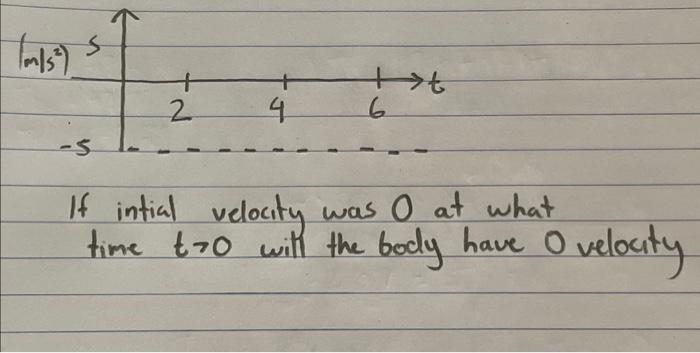 (m/s²) 5
t
2 4 6
-5
If intial velocity was 0 at what
time t>0 will the body have 0 velocity